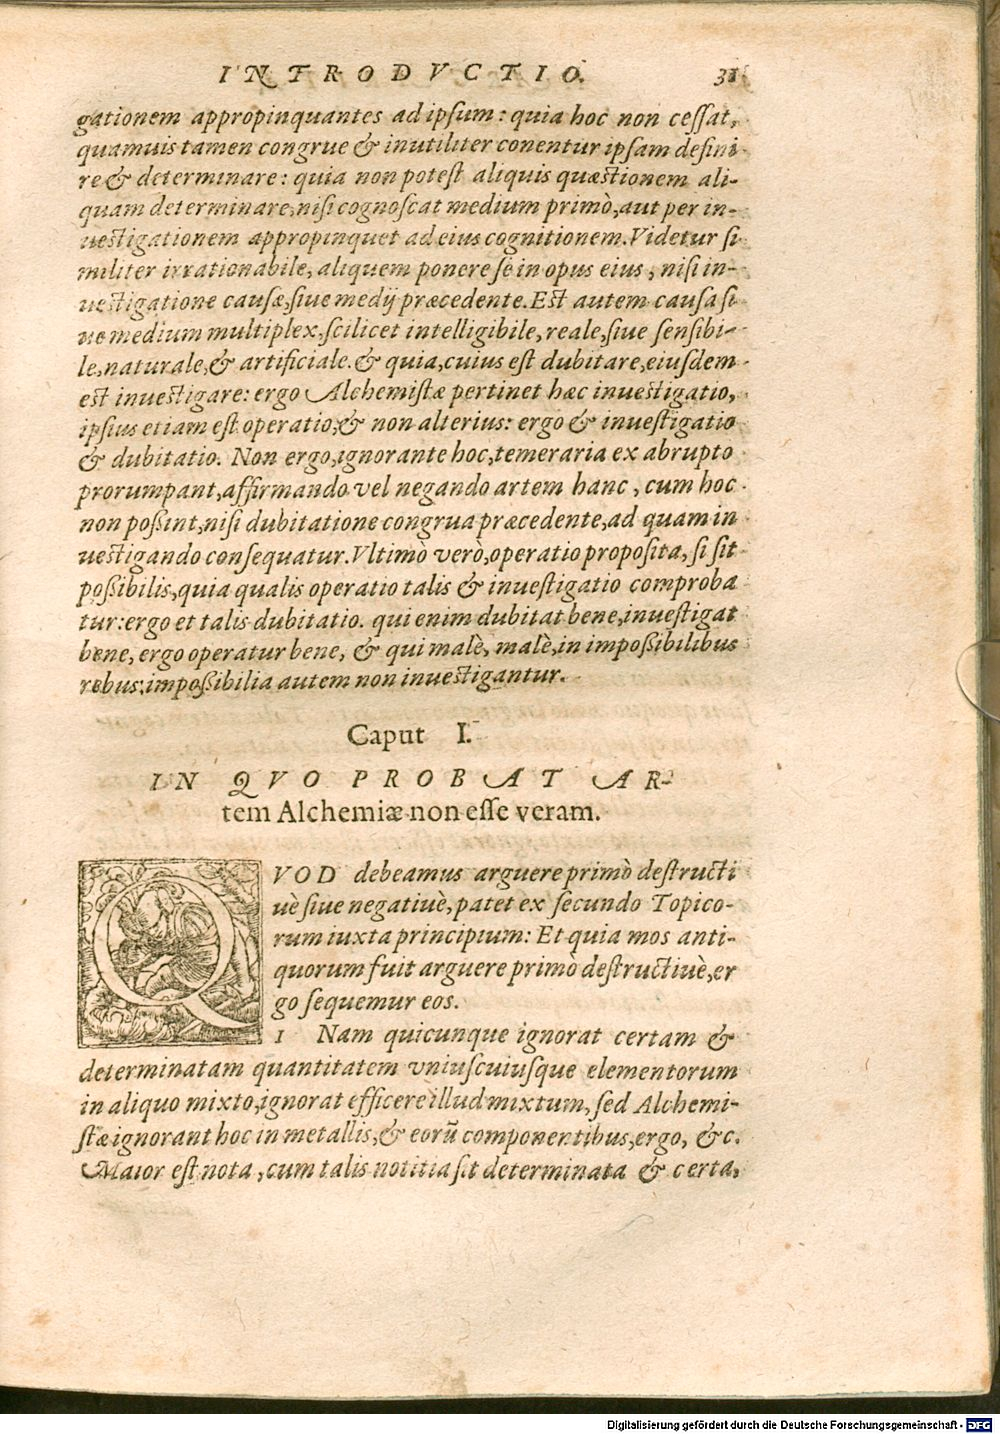 INTRODVCTIO. 31
gationem appropinquantes ad ipsum: quia hoc non cessat,
quamuis tamen congrue & inutiliter conentur ipsam defini
re & determinare: quia non potest aliquis quæstionem ali-
quam determinare, nisi cognoscat medium primò, aut per in-
uestigationem appropinquet ad eius cognitionem. Videtur si
militer irrationabile, aliquem ponere se in opus eius, nisi in-
uestigatione causæ, siue medij præcedente. Est autem causa si
ue medium multiplex, scilicet intelligibile, reale, siue sensibi-
le, naturale, & artificiale. & quia, cuius est dubitare, eiusdem
est inuestigare: ergo Alchemistæ pertinet hæc inuestigatio,
ipsius etiam est operatio, & non alterius: ergo & inuestigatio
& dubitatio. Non ergo, ignorante hoc, temeraria ex abrupto
prorumpant, affirmando vel negando artem hanc, cum hoc
non poßint, nisi dubitatione congrua præcedente, ad quam in
uestigando consequatur. Vltimò verò, operatio proposita, si sit
poßibilis, quia qualis operatio talis & inuestigatio comproba
tur: ergo et talis dubitatio. qui enim dubitat bene, inuestigat
bene, ergo operatur bene, & qui malè, malè, in impoßibilibus
rebus: impoßibilia autem non inuestigantur.
Caput I.
IN QVO PROBAT AR-
tem Alchemiæ non esse veram.
QVOD debeamus arguere primò destructi
uè siue negatiuè, patet ex secundo Topico-
rum iuxta principium: Et quia mos anti-
quorum fuit arguere primò destructiuè, er
go sequemur eos.
1 Nam quicunque ignorat certam &
determinatam quantitatem vniuscuiusque elementorum
in aliquo mixto, ignorat efficere illud mixtum, sed Alchemi-
stæ ignorant hoc in metallis, & eorũ componentibus, ergo, &c.
Maior est nota, cum talis notitia sit determinata & certa,
Digitalisierung gefördert durch die Deutsche Forschungsgemeinschaft - DFG